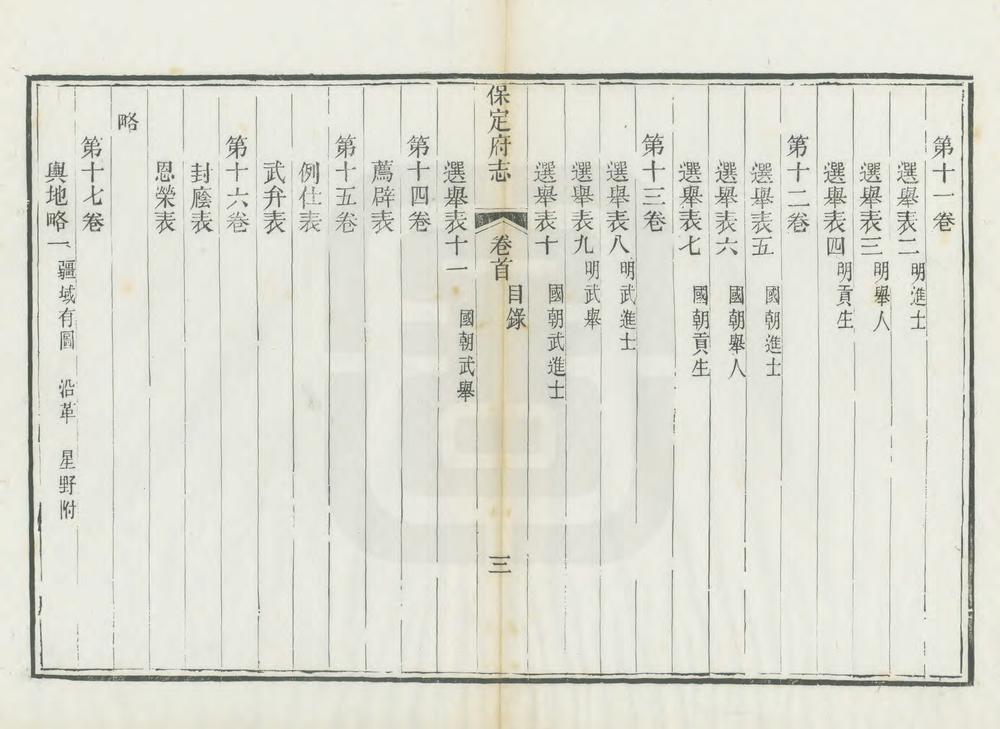 第十一卷
選舉表二 明進士
選舉表三 明舉人
選舉表四 明貢生
第十二卷
選舉表五 國朝進士
選舉表六 國朝舉人
選舉表七 國朝貢生
第十三卷
選舉表八 明武進士
選舉表九 明武舉
選舉表十 國朝武進士
保定府志 卷首 目錄 三
選舉表十一 國朝武舉
第十四卷
薦辟表
第十五卷
例仕表
武弁表
第十六卷
封廕表
恩榮表
略
第十七卷
輿地略一 疆域有圖 沿革 星野附